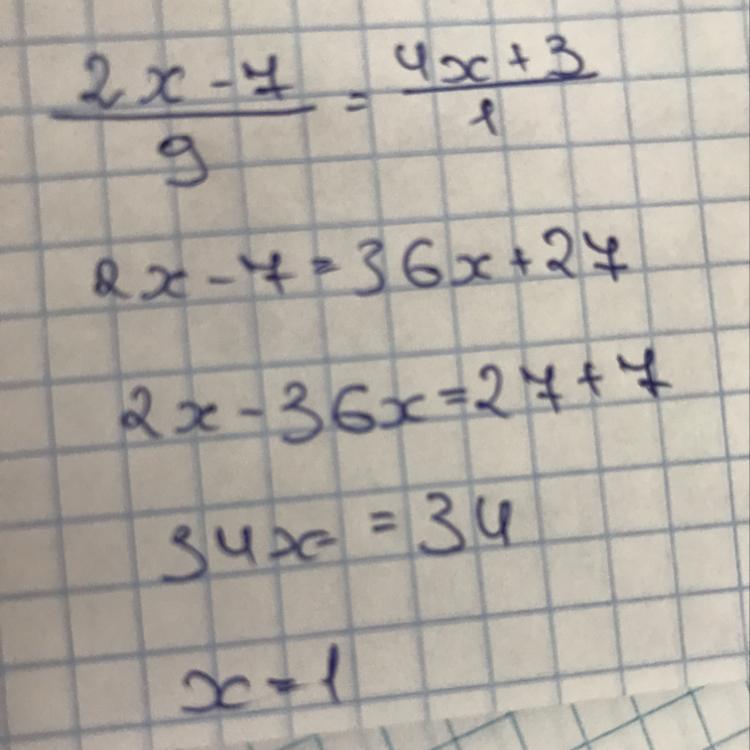 2x-7/9 = 4x+3/1
2x-7=36x+27
2x-36x=27+7
34x=34
x=1